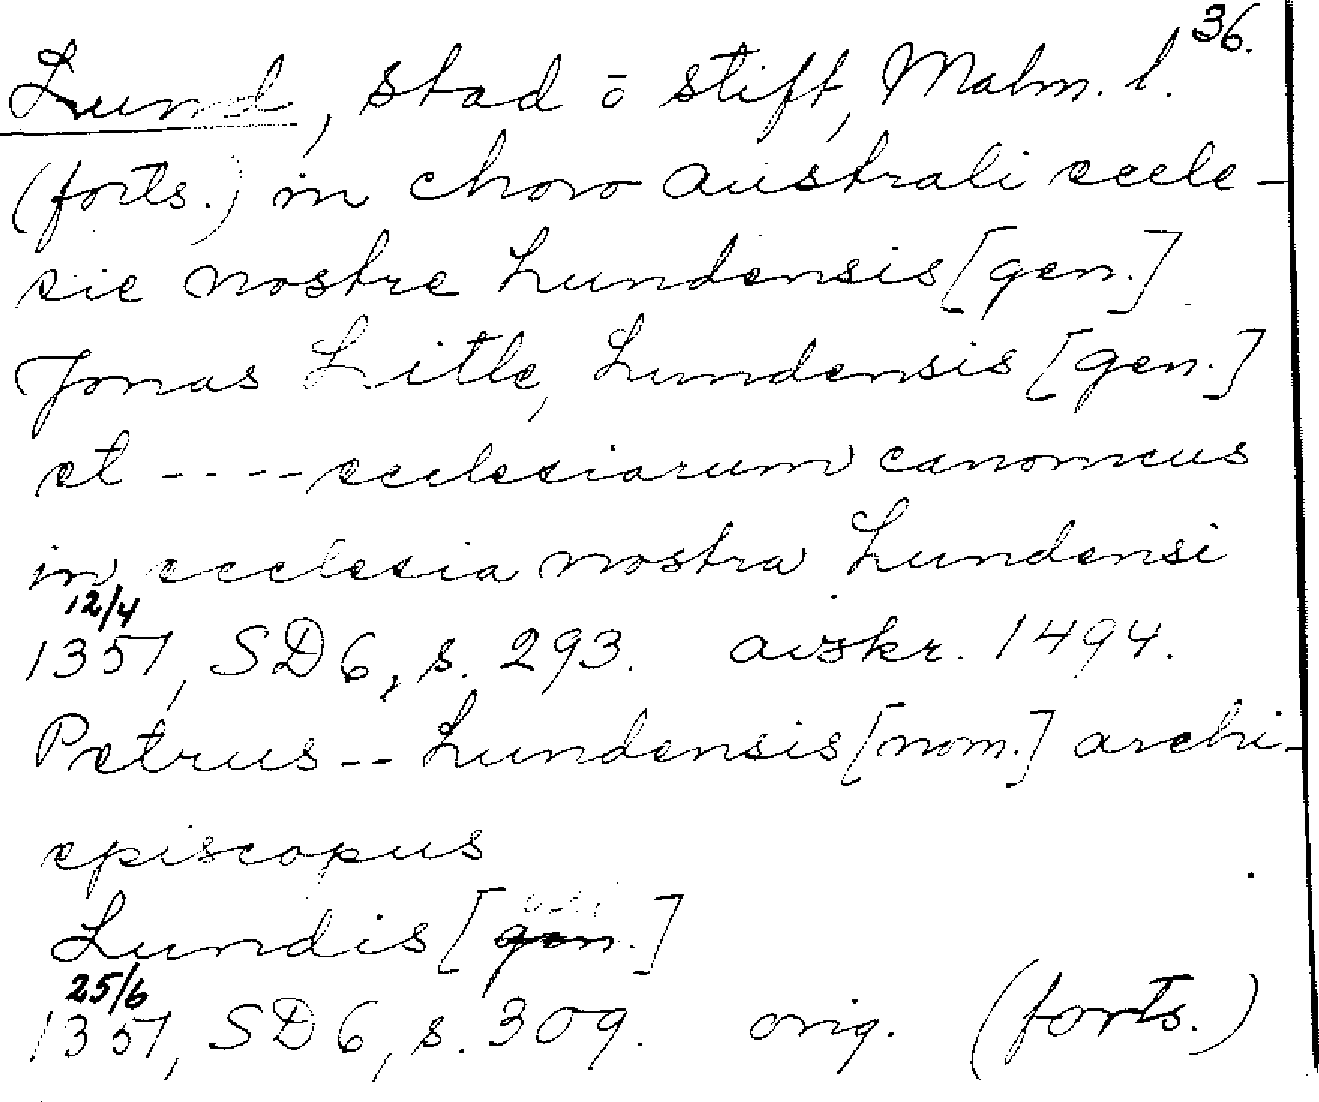 36.
Lund, stad o stift, Malm. l.
(forts.) in choro australi eccle-
sie nostre Lundensis [gen.]
Jonas Litle, Lundensis [gen.]
et ---- ecclesiarum canonicus
in ecclesia nostra Lundensi
12/4
1357, SD 6, s. 293. avskr. 1494.
Petrus -- Lundensis [nom.] archi-
episcopus
Lundis [gen.]
25/6
1357, SD 6, s. 309. orig. (forts.)